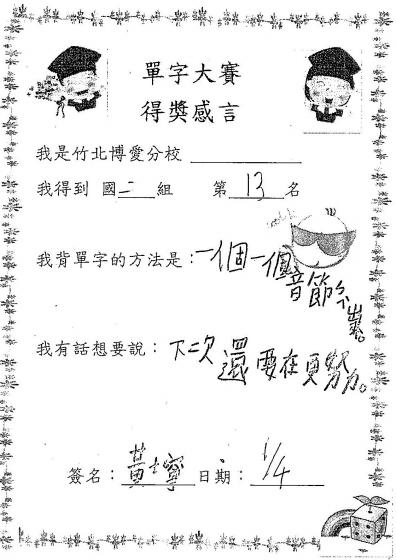 單字大賽
得獎感言
我是竹北博愛分校
我得到 國二組 第 13 名
我背單字的方法是：一個一個
音節
我有話想要說：下二次還要在更努力。
簽名：黃士寧 日期：1/4